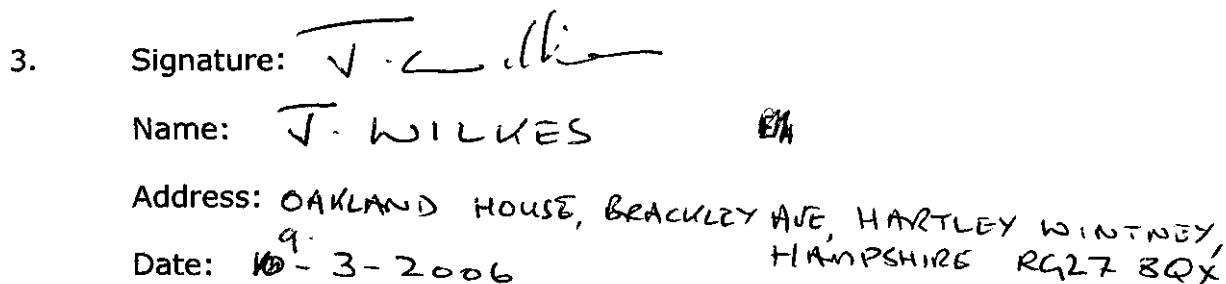 3. Signature:
Name: J. WILKES
Address: OAKLAND HOUSE, BRACKLEY AVE, HARTLEY WINTNEY,
HAMPSHIRE RG27 8QX
Date: 9.-3-2006